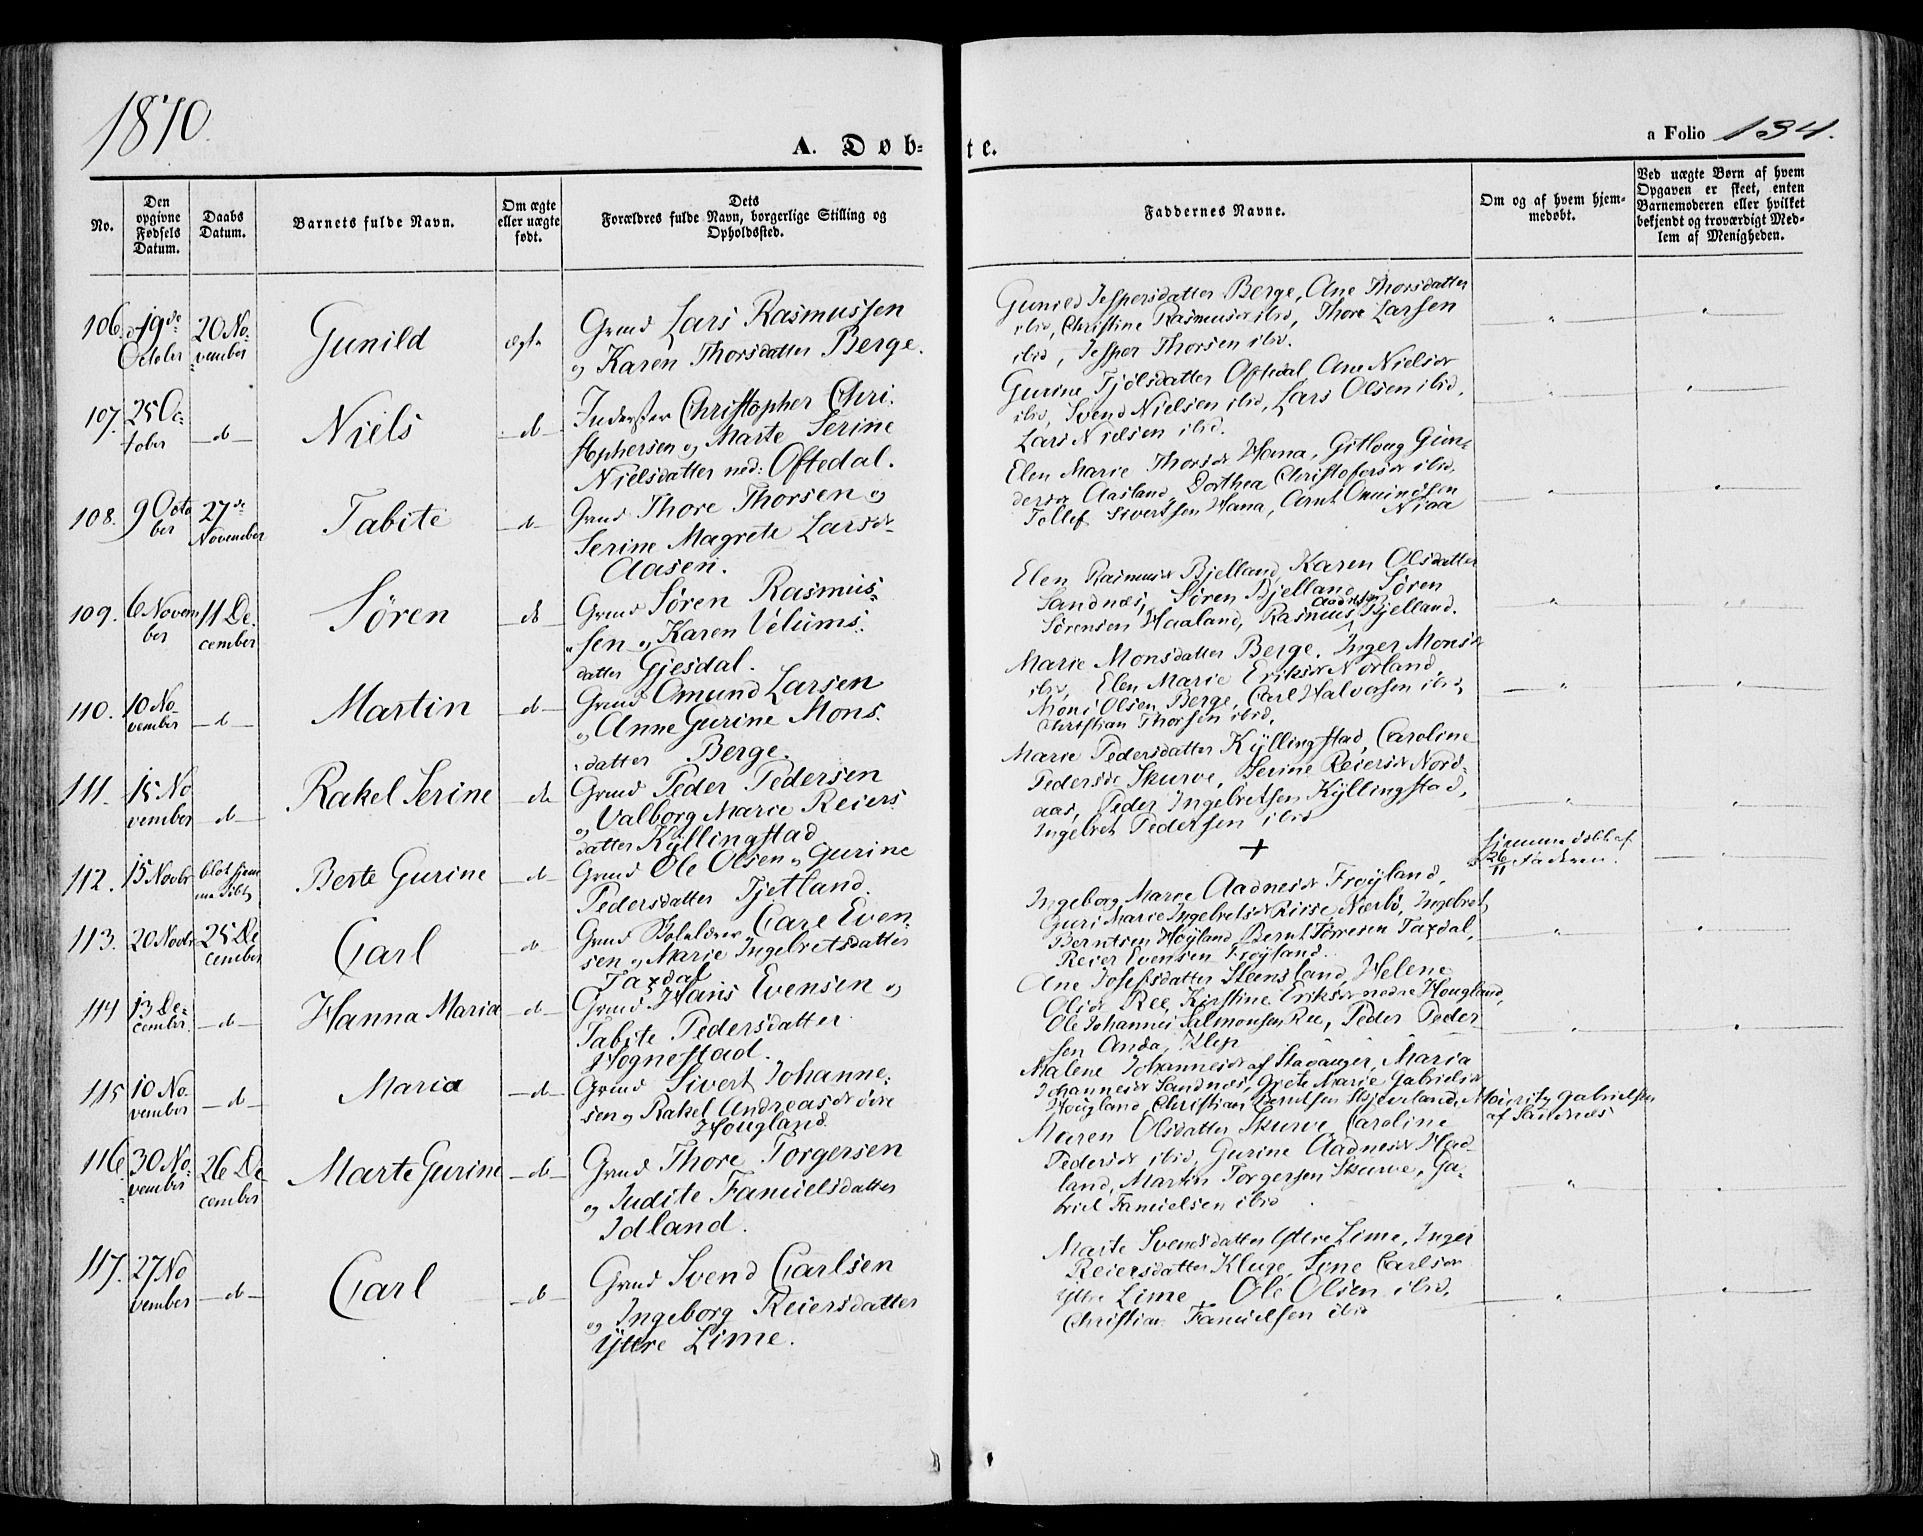 1870.
A. Døb-
te.
a Folio 134.
No.
Den opgivne Fødsels Datum.
Daabs Datum.
Barnets fulde Navn.
Om ægte eller uægte født.
Dets Forældres fulde Navn, borgerlige Stilling og Opholdssted.
Faddernes Navne.
Om og af hvem hjemmedøbt.
Ved uægte Børn af hvem Opgaven er skeet, enten Barnemoderen eller hvilket bekjendt og troværdigt Medlem af Menigheden.
106. 19de October
20 November
Gunild
ægte
Grmd Lars Rasmussen
og Karen Thorsdatter Berge.
Gunild Jespersdatter Berge, Ane Thorsdatter
ibid, Christine Rasmusdr ibid, Thore Larsen
ibid, Jesper Thorsen ibid.
107. 25 October
d
Niels
d
Inderster Christopher Chri-
stophersen og Marte Serine
Nielsdatter ned: Oftedal.
Gurine Tjølsdatter Oftedal, Ane Nielsdr
ibid, Svend Nielsen ibid, Lars Olsen ibid,
Lars Nielsen ibid.
108. 9 October
27de November
Tabite
d
Grmd Thore Thorsen og
Serine Magrete Larsdr
Aasen.
Elen Marie Thorsdr Hana, Gitloug Gun-
dersdr Aasland, Dorthea Christofersdr ibid,
Tollef Sivertsen Hana, Arnt Omundsen
Aasen
109. 6 November
11 December
Søren
d
Grmd Søren Rasmus-
sen og Karen Velums-
datter Gjesdal.
Elen Rasmusdr Bjelland, Karen Olsdatter
Sandnæs, Søren Bjelland, Søren
Sørensen Haaland, Rasmus Aadnesen Bjelland.
110. 10 November
d
Martin
d
Grmd Omund Larsen
og Anne Gurine Mons-
datter Berge.
Marie Monsdatter Berge, Inger Monsdr
ibid, Elen Marie Eriksdr Norland,
Mons Olsen Berge, Carl Halvorsen ibid,
Christian Thorsen ibid.
111. 15 November
d
Rakel Serine
d
Grmd Peder Pedersen
og Valborg Marie Reiers
datter Kyllingstad
Marie Pedersdatter Kyllingstad, Caroline
Pedersdr Skurve, Serine Reiersdr Nord-
aas, Peder Ingebretsen Kyllingstad,
Ingebret Pedersen ibid
112. 15 Novbr
blot hjem-
medøbt
Berte Gurine
d
Grmd Ole Olsen og Gurine
Pedersdatter Tjetland.
+
hjemmedøbt af
26/11 Faderen.
113. 20 Novbr
25 December
Carl
d
Grmd Carl Even-
sen og Marie Ingebretsdatter
Taxdal
Ingeborg Marie Aadnesdr Frøyland,
Guri Marie Ingebretsdr Riise Nærbø, Ingebret
Berntsen Høyland, Bernt Torresen Taxdal,
Reier Evensen Frøyland.
114 13 December
d
Hanna Maria
d
Grmd Hans Evensen og
Tabite Pedersdatter
Hognestad.
Ane Josefsdatter Steensland, Helene
Olsdr Ree, Kirstine Eriksdr nedre Hougland,
Ole Johannes Salmonsen Ree, Peder Peder
sen Anda, Klep
115 10 November
d
Maria
d
Grmd Sivert Johanne-
sen og Rakel Andreasdr øvre
Hougland.
Malene Johannesdr af Stavanger, Maria
Johannesdr Sandnæs, Grete Marie Gabrielsdr
Hougland, Christian Berntsen Skjeveland, Gabrielsen
af Sandnæs
116 30 November
26 December
Marte Gurine
d
Grmd Thore Torgersen
og Judite Famuelsdatter
Idland.
Maren Olsdatter Skurve, Caroline
Pedersdr ibid, Gurine Aadnesdr Had-
land, Martin Torgersen Skurve, Ga-
briel Famuelsen ibid
117. 27 November
d
Carl
d
Grmd Svend Carlsen
og Ingeborg Reiersdatter
Yttre Lime.
Marte Svendsdatter Yttre Lime, Inger
Reiersdatter Kluge, Sine Carlsdr
Yttre Lime, Ole Olsen ibid,
Christian Famuelsen ibid